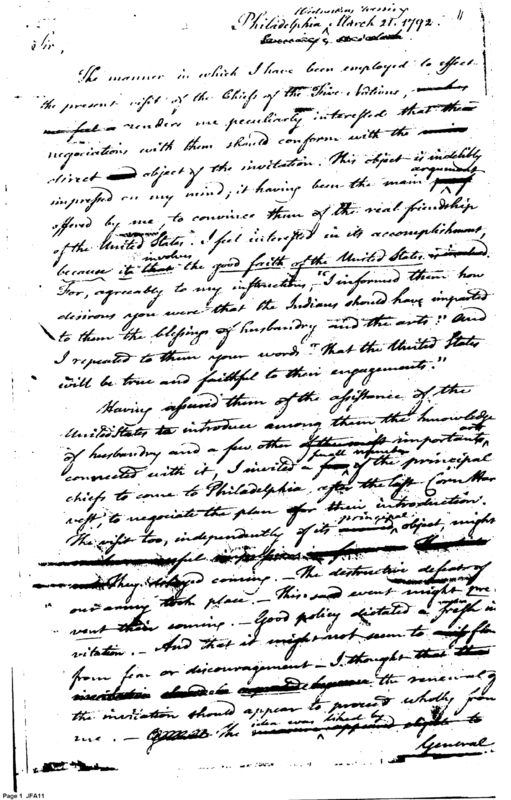 Wednesday Evening
Philadelphia March 28. 1792.
Sir,
The manner in which I have been employed to effect
the present visit of the Chiefs of the Five Nations,
renders me peculiarly interested that the
negociations with them should conform with the
direct object of the invitation. This object is indelibly
impressed on my mind; it having been the main argument
offered by me, to convince them of the real friendship
of the United States. I feel interested in its accomplishment,
because it involves the good faith of the United States.
For, agreeably to my instructions, "I informed them how
desirous you were that the Indians should have imparted
to them the blessings of husbandry and the arts." And
I repeated to them your words "that the United States
will be true and faithful to their engagements."
Having assured them of the assistance of the
United States to introduce among them the knowledge
of husbandry and a few other important arts
connected with it, I invited a small number of the principal
chiefs to come to Philadelphia, after the last Corn Har
vest, to negotiate the plan for their introduction.
The visit too, independently of its principal object, might
They delayed coming. — The destructive defeat of
our army took place. — This event might pre
vent their coming. — Good policy dictated a fresh in
vitation. — And that it might not seem to flow
from fear or discouragement — I thought
the renewal of
the invitation should appear to proceed wholly from
me. — The idea was liked by
General
Page 1 JFA11